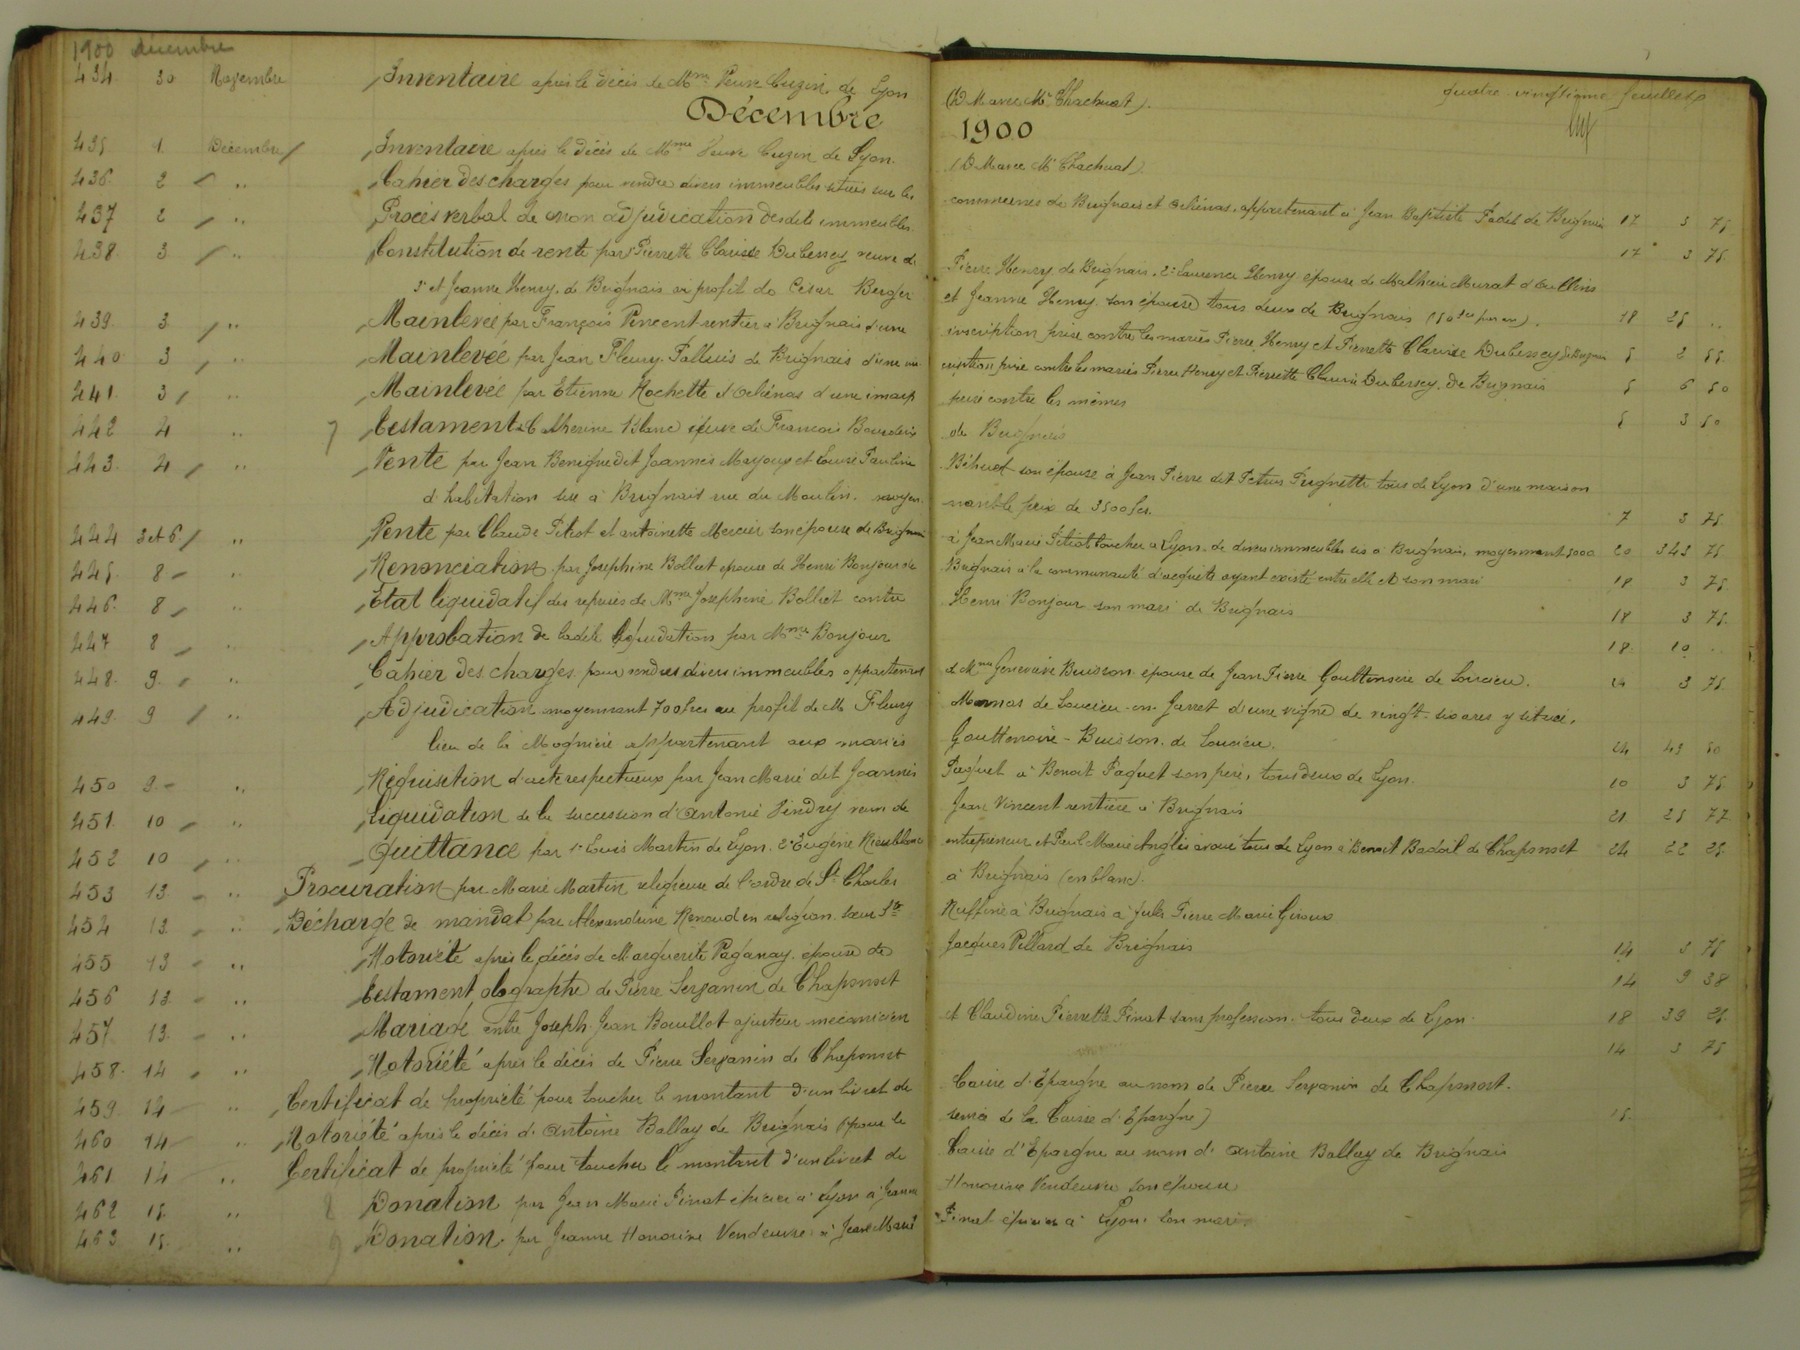 1900 décembre
quatre vingtième feuillets
434 30 Novembre Inventaire après le décès de Mme Veuve Cuzin, de Lyon (D Marec Me Chachuat).
Décembre 1900
435 1 Décembre Inventaire après le décès de Mme Veuve Cuzin de Lyon. (D Marec Me Chachuat)
436 2 " Cahier des charges pour vendre divers immeubles situés sur les communes de Brignais et Orliénas, appartenant à Jean Baptiste de Brignais 17 3 75
437 2 " Procès verbal de non adjudication desdits immeubles. 17 3 75
438 3 " Constitution de rente par Pierrette Clarisse Dubessey veuve de Pierre Henry, de Brignais, 2° Laurence Henry épouse de Mathieu Murat d'Oullins
3° et Jeanne Henry, de Brignais au profit de César Berger et Jeanne Henry son épouse tous deux de Brignais (50 fcs par an). 18 25 "
439 3 " Mainlevée par François Vincent rentier à Brignais d'une inscription prise contre les mariés Pierre Henry et Pierrette Clarisse Dubessey de Brignais 5 2 55
440 3 " Mainlevée par Jean Fleury Palluis de Brignais d'une inscription prise contre les mariés Pierre Henry et Pierrette Clarisse Dubessey, de Brignais 5 6 50
441 3 " Mainlevée par Etienne Rochette d'Orliénas d'une inscrip prise contre les mêmes 5 3 50
442 4 " 7 Testament Catherine Blanc veuve de François Bourdein de Brignais
443 4 " Vente par Jean Benigne dit Joannès Mayoux et Louise Pauline Béhuet son épouse à Jean Pierre dit Petrus Prugnette tous de Lyon d'une maison
d'habitation sise à Brignais rue du Moulin. moyennant le prix de 3500 fcs. 7 3 75
444 3 et 6 " Vente par Claude Pitiot et Antoinette Mercier son épouse de Brignais à Jean Marie Pitiot boucher à Lyon de divers immeubles sis à Brignais, moyennant 5000 20 343 75
445 8 " Renonciation par Josephine Bolliet épouse de Henri Bonjour de Brignais à la communauté d'acquêts ayant existé entre elle et son mari 18 3 75
446 8 " Etat liquidatif des reprises de Mme Josephine Bolliet contre Henri Bonjour son mari de Brignais 18 3 75
447 8 " Approbation de ladite liquidation par Mme Bonjour 18 10 "
448 9 " Cahier des charges pour vendre divers immeubles appartenant à Mme Genevieve Buisson épouse de Jean Pierre Gouttenoire de Soucieu. 24 3 75
449 9 " Adjudication moyennant 700 fcs au profit de M Fleury Marnas de Soucieu-en-Jarret d'une vigne de vingt-six ares y située,
lieu de la Mognière appartenant aux mariés Gouttenoire-Buisson, de Soucieu. 24 49 50
450 9 " Réquisition d'acte respectueux par Jean Marie dit Joannès Paquet à Benoit Paquet son père, tous deux de Lyon. 10 3 75
451 10 " Liquidation de la succession d'Antonie Vindry veuve de Jean Vincent rentière à Brignais 21 25 77
452 10 " Quittance par 1° Louis Martin de Lyon, 2° Eugène Rieublanc entrepreneur et Paul Marie Anglès avoué tous de Lyon à Benoit Badoil de Chaponost 24 22 25
453 13 " Procuration par Marie Martin religieuse de l'ordre de St Charles à Brignais (en blanc).
454 13 " Décharge de mandat par Alexandrine Renaud en religion sœur Ste Ruffine à Brignais à Jules Pierre Marie Giroux
455 13 " Notoriété après le décès de Marguerite Paganay épouse de Jacques Pellard de Brignais 14 3 75
456 13 " Testament olographe de Pierre Serpanin de Chaponost 14 9 38
457 13 " Mariage entre Joseph Jean Bouillet ajusteur mecanicien et Claudine Pierrette Pinat sans profession. tous deux de Lyon. 18 39 25
458 14 " Notoriété après le décès de Pierre Serpanin de Chaponost 14 3 75
459 14 " Certificat de propriété pour toucher le montant d'un livret de Caisse d'Epargne au nom de Pierre Serpanin de Chaponost.
460 14 " Notoriété après le décès d'Antoine Ballay de Brignais (pour le service de la Caisse d'Epargne) 15
461 14 " Certificat de propriété pour toucher le montant d'un livret de Caisse d'Epargne au nom d'Antoine Ballay de Brignais
462 15 " 8 Donation par Jean Marie Pinat épicier à Lyon à Jeanne Honorine Vendeuvre son épouse
463 15 " 9 Donation par Jeanne Honorine Vendeuvre à Jean Marie Pinat épicier à Lyon, son mari.